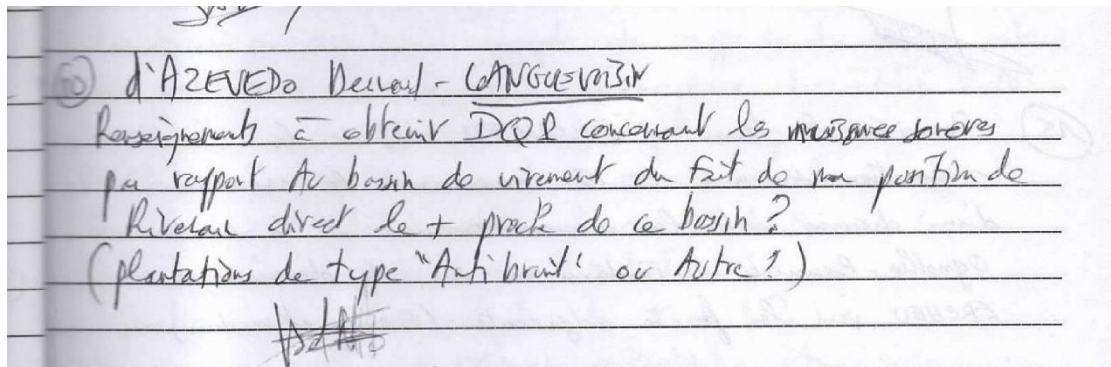 d'AZEVEDO - LANGUEVOISIN
Renseignements à obtenir DQE concernant les nuisances sonores
par rapport Au bassin de virement du fait de ma position de
Riverain direct le + proche de ce bassin ?
(plantations de type "Antibruit" ou Autre ?)